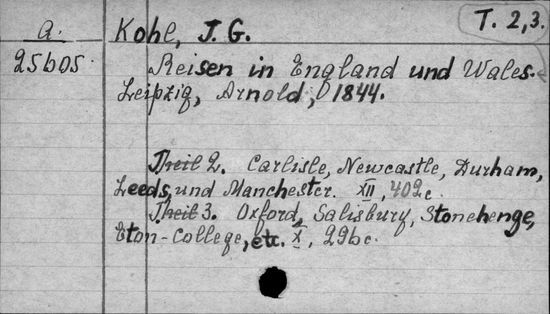 T. 2,3.
a. Kohl, J. G.
25605. Reisen in England und Wales.
Leipzig, Arnold, 1844.
Theil 2. Carlisle, Newcastle, Durham,
Leeds, und Manchester. XII, 402c.
Theil 3. Oxford, Salisbury, Stonehenge,
Eton-College, etc. X, 296c.